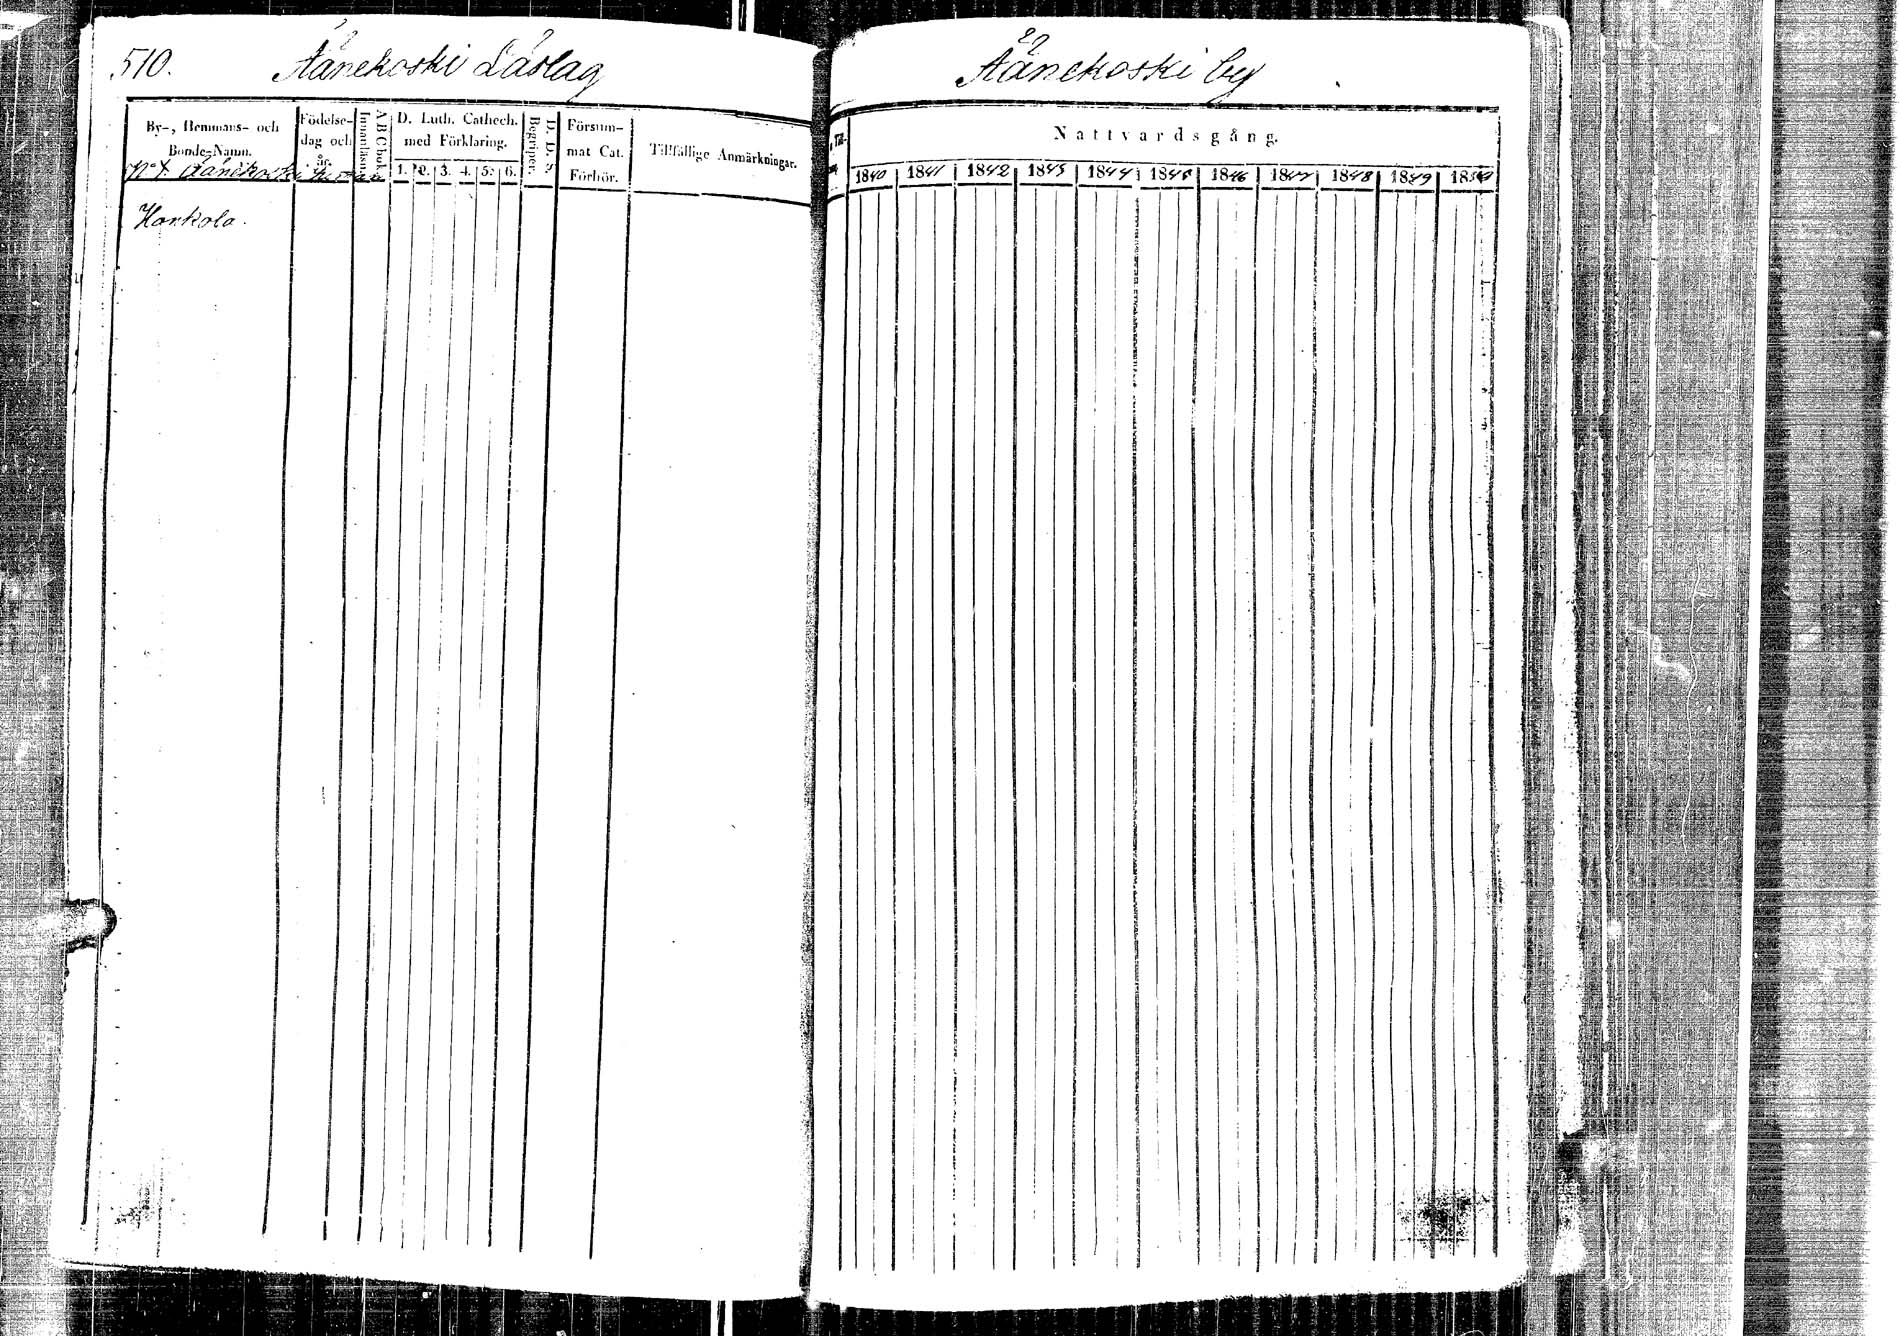 510.
Äänekoski Läslag
By-, Hemmans- och
Bonde-Namn.
Äänekoski
Harkola.
Födelse-
dag och
år.
Innanläsning
A B C bok.
D. Luth. Cathech.
med Förklaring.
1. 2. 3. 4. 5. 6.
D. D. S.
Begriper.
Försum-
mat Cat.
Förhör.
Tillfällige Anmärkningar.
Äänekoski by
Nattvardsgång.
1840 1841 1842 1843 1844 1845 1846 1847 1848 1849 1850